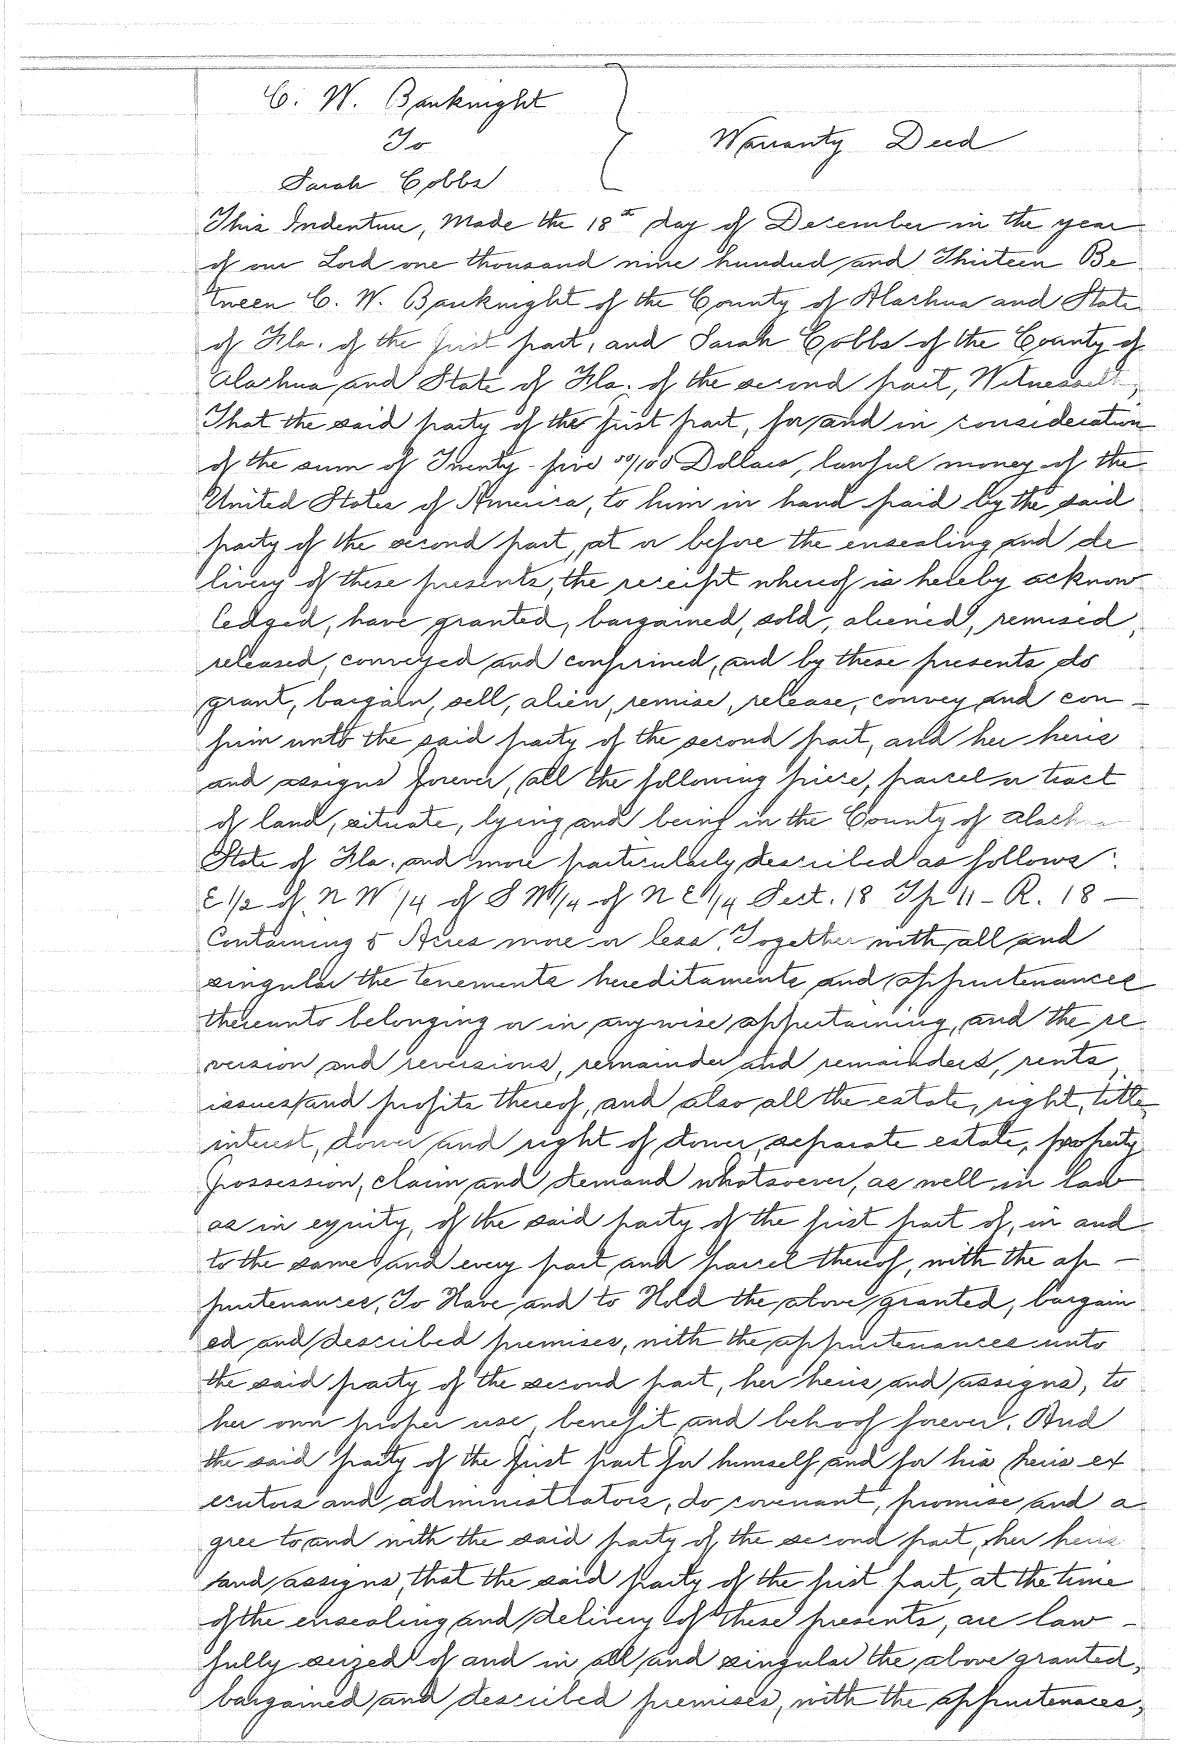 C. W. Bauknight
To
Warranty Deed
Sarah Cobbs
This Indenture, Made the 18th day of December in the year
of our Lord one thousand nine hundred and Thirteen Be
tween C. W. Bauknight of the County of Alachua and State
of Fla. of the first part, and Sarah Cobbs of the County of
Alachua and State of Fla. of the second part, Witnesseth,
That the said party of the first part, for and in consideration
of the sum of Twenty-five 00/100 Dollars, lawful money of the
United States of America, to him in hand paid by the said
party of the second part, at or before the ensealing and de
livery of these presents, the receipt whereof is hereby acknow
ledged, have granted, bargained, sold, aliened, remised,
released, conveyed and confirmed, and by these presents do
grant, bargain, sell, alien, remise, release, convey and con-
firm unto the said party of the second part, and her heirs
and assigns forever, all the following piece, parcel or tract
of land, situate, lying and being in the County of Alachua
State of Fla. and more particularly described as follows:
E 1/2 of N W 1/4 of S W 1/4 of N E 1/4 Sect. 18 Tp 11- R. 18 -
Containing 5 Acres more or less. Together with all and
singular the tenements hereditaments and appurtenances
thereunto belonging or in anywise appertaining, and the re
version and reversions, remainder and remainders, rents,
issues and profits thereof, and also all the estate, right, title,
interest, dower and right of dower, separate estate, property
possession, claim and demand whatsoever, as well in law
as in equity, of the said party of the first part of, in and
to the same and every part and parcel thereof, with the ap-
purtenances, To Have and to Hold the above granted, bargain
ed and described premises, with the appurtenances unto
the said party of the second part, her heirs and assigns, to
her own proper use, benefit and behoof forever. And
the said party of the first part for himself and for his heirs ex
ecutors and administrators, do covenant, promise and a
gree to and with the said party of the second part, her heirs
and assigns, that the said party of the first part, at the time
of the ensealing and delivery of these presents, are law-
fully seized of and in all and singular the above granted,
bargained and described premises, with the appurtenaces,